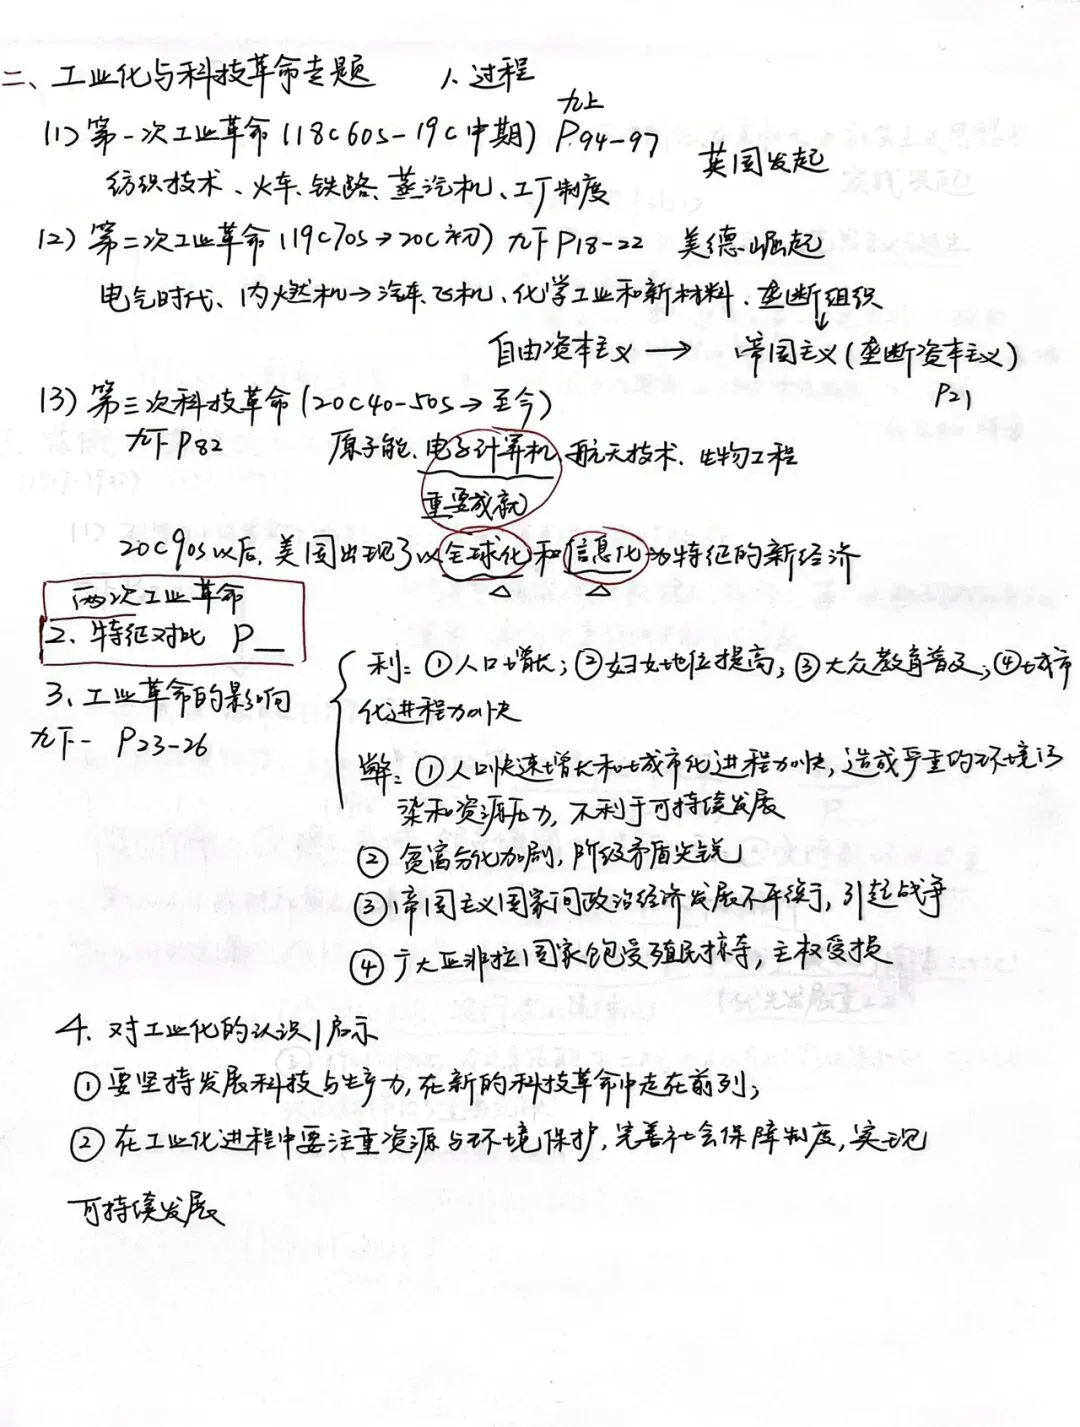 二、工业化与科技革命专题 1.过程
九上
(1)第一次工业革命(18C60s-19C中期) P.94-97 英国发起
纺织技术、火车、铁路、蒸汽机、工厂制度
(2)第二次工业革命(19C70s→20C初)九下P18-22 美德崛起
电气时代、内燃机→汽车、飞机、化学工业和新材料、垄断组织
↓
自由资本主义→帝国主义(垄断资本主义)
P21
(3)第三次科技革命(20C40-50s→至今)
九下P82 原子能、电子计算机、航天技术、生物工程
重要成就
20C90s以后,美国出现了以全球化和信息化为特征的新经济
两次工业革命
2、特征对比 P__
利:①人口增长;②妇女地位提高;③大众教育普及;④城市
3、工业革命的影响
化进程加快
九下- P23-26
弊:①人口快速增长和城市化进程加快,造成严重的环境污
染和资源压力,不利于可持续发展
②贫富分化加剧,阶级矛盾尖锐
③帝国主义国家间政治经济发展不平衡,引起战争
④广大亚非拉国家饱受殖民掠夺,主权受损
4.对工业化的认识/启示
①要坚持发展科技与生产力,在新的科技革命中走在前列;
②在工业化进程中要注重资源与环境保护,完善社会保障制度,实现
可持续发展